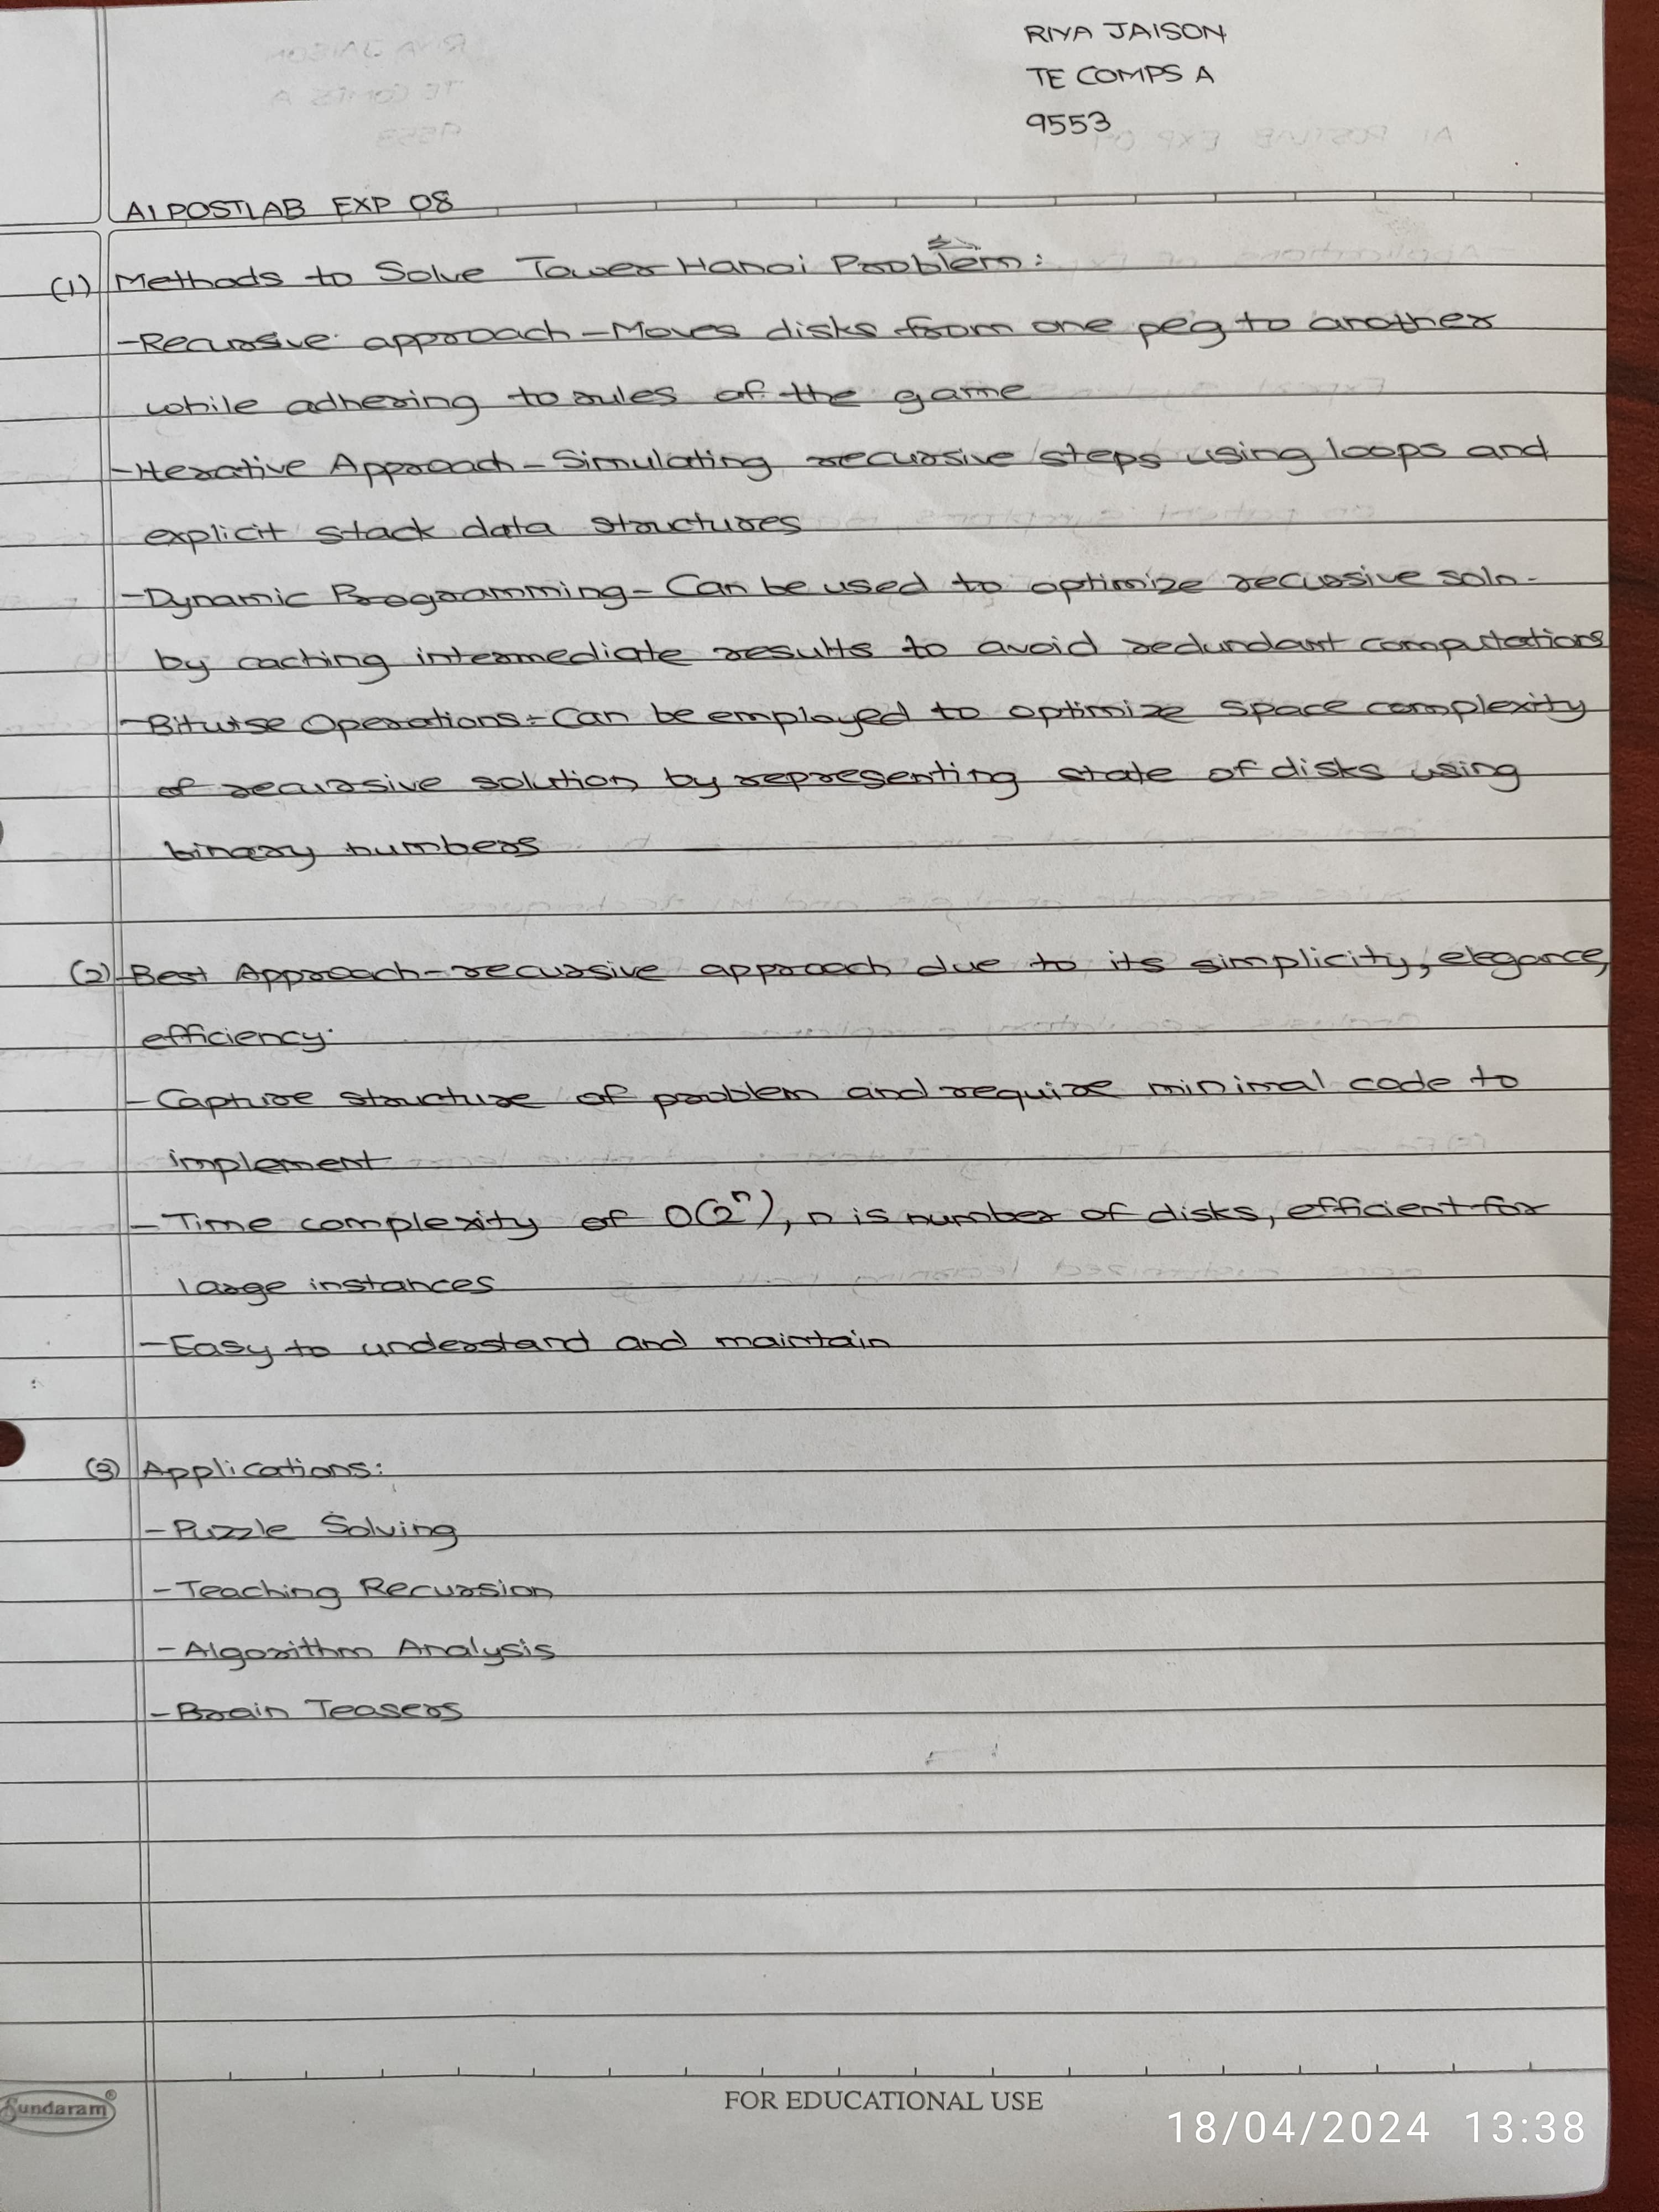 RIYA JAISON
TE COMPS A
9553
AI POSTLAB EXP 08
(1) Methods to Solve Tower Hanoi Problem:
-Recursive approach-Moves disks from one peg to another
while adhering to rules of the game
-Iterative Approach-Simulating recursive steps using loops and
explicit stack data structures
-Dynamic Programming-Can be used to optimize recursive soln.
by caching intermediate results to avoid redundant computations
-Bitwise Operations-Can be employed to optimize space complexity
of recursive solution by representing state of disks using
binary numbers
(2) Best Approach-recursive approach due to its simplicity, elegance,
efficiency.
-Capture structure of problem and require minimal code to
implement
-Time complexity of O(2ⁿ), n is number of disks, efficient for
large instances
-Easy to understand and maintain
(3) Applications:
-Puzzle Solving
-Teaching Recursion
-Algorithm Analysis
-Brain Teasers
Sundaram®
FOR EDUCATIONAL USE
18/04/2024 13:38